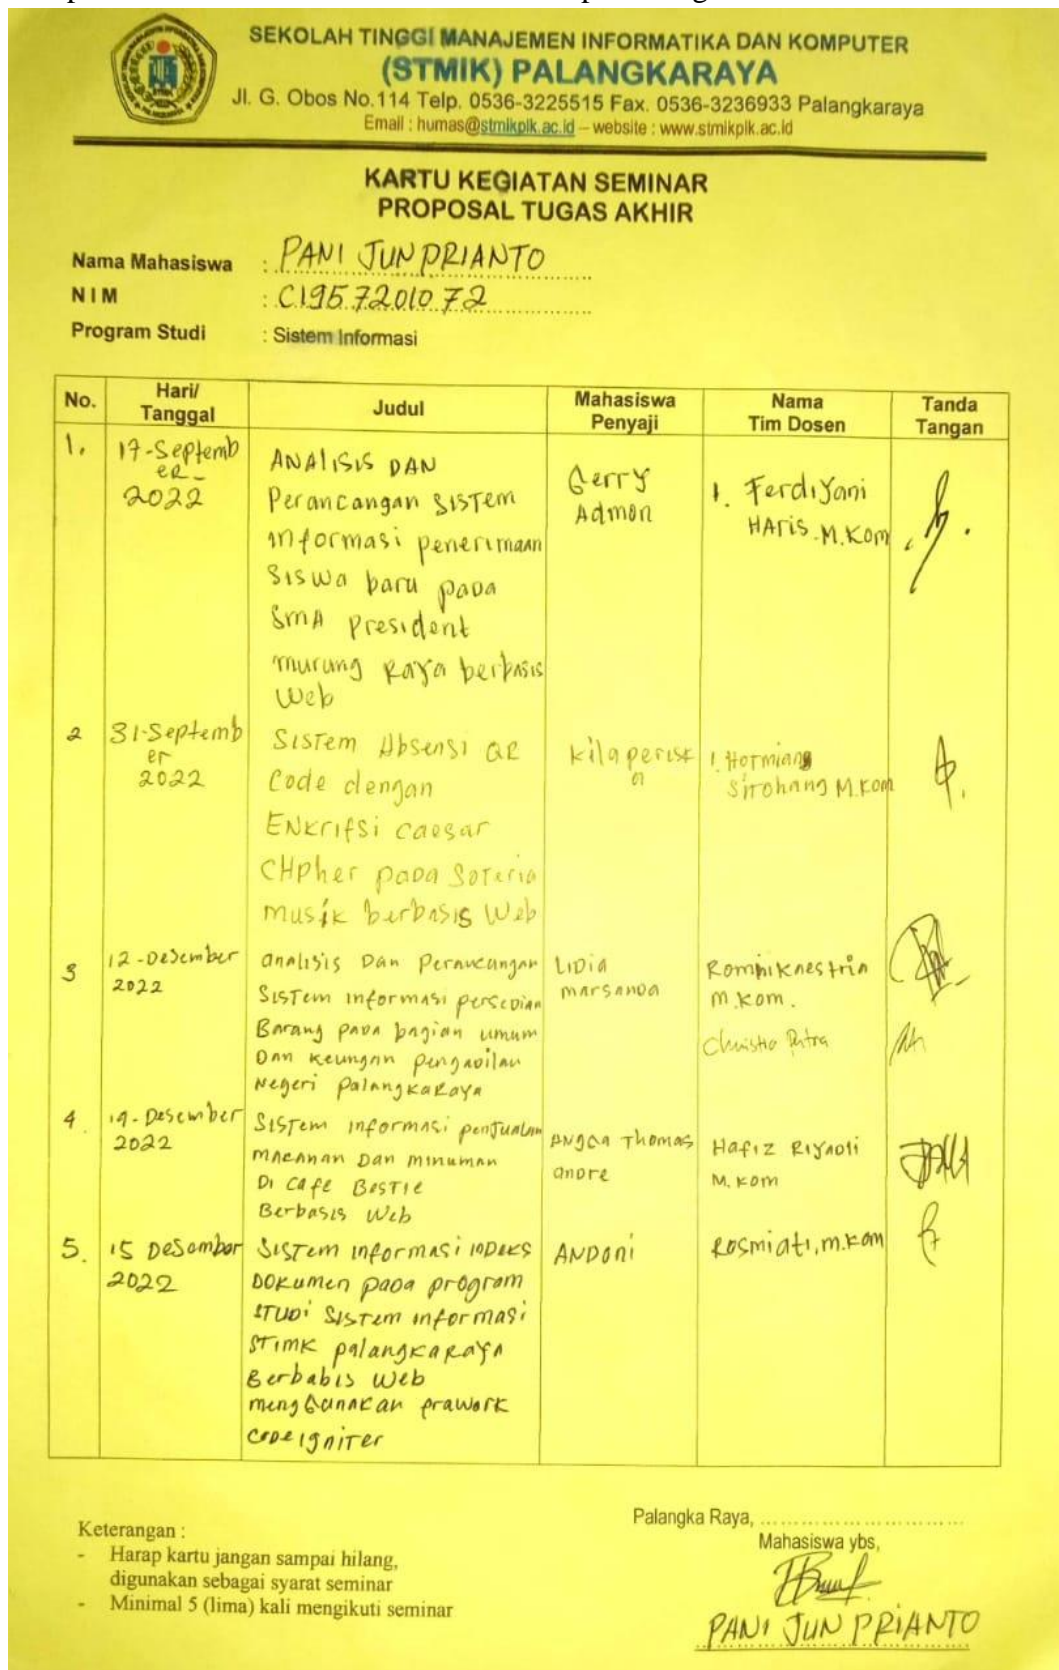 SEKOLAH TINGGI MANAJEMEN INFORMATIKA DAN KOMPUTER
(STMIK) PALANGKARAYA
Jl. G. Obos No.114 Telp. 0536-3225515 Fax. 0536-3236933 Palangkaraya
Email : humas@stmikplk.ac.id – website : www.stmikplk.ac.id
KARTU KEGIATAN SEMINAR
PROPOSAL TUGAS AKHIR
Nama Mahasiswa : PANI JUNPRIANTO
N I M : C1957201072
Program Studi : Sistem Informasi
No. Hari/ Tanggal Judul Mahasiswa Penyaji Nama Tim Dosen Tanda Tangan
1. 17-Septemb
er-
2022
ANALISIS DAN
Perancangan SISTEM
informasi penerimaan
Siswa baru pada
SMA President
murung Raya berbasis
Web
Gerry
Admon
1. Ferdiyani
HARIS M.Kom
2 31-Septemb
er
2022
SISTEM Absensi QR
Code dengan
ENKRIFSI caesar
CHPher pada Soteria
musik berbasis Web
1. Hormiang
Sirohang M.Kom
3 12-Desember
2022
analisis Dan Perancangan
SISTem informasi persedian
Barang pada bagian umum
Dan keungan pengadilan
Negeri palangkaRaya
LIDIA
MARSANDA
M.Kom.
Christio Putra
4. 19-Desember
2022
SISTem informasi penjualan
makanan Dan minuman
Di cafe BESTIE
Berbasis Web
Thomas
andre
Hafiz RIYADII
M.KOM
5. 15 Desomber
2022
SISTem informasi inDeks
DOKumen pada program
STUDi SISTem informasi
STIMK palangkaRaya
Berbabis Web
menggunakan prawork
CODeigniTer
ANDONi
Rosmiati, M.Kom
Palangka Raya, ..............................
Mahasiswa ybs,
PANI JUN PRIANTO
Keterangan :
- Harap kartu jangan sampai hilang,
digunakan sebagai syarat seminar
- Minimal 5 (lima) kali mengikuti seminar